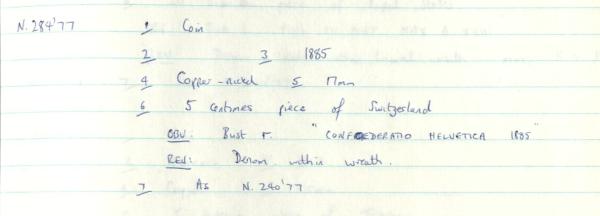 N. 284'77 1 Coin
2 3 1885
4 Copper-nickel 5 17mm
6 5 Centimes piece of Switzerland
OBV: Bust r. "CONFOEDERATIO HELVETICA 1885"
REV: Denom within wreath.
7 As N.240'77